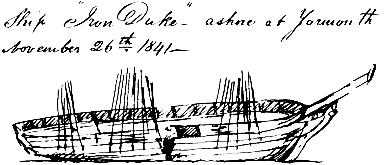 Ship "Iron Duke" - ashore at Yarmouth
November 26th 1841 -